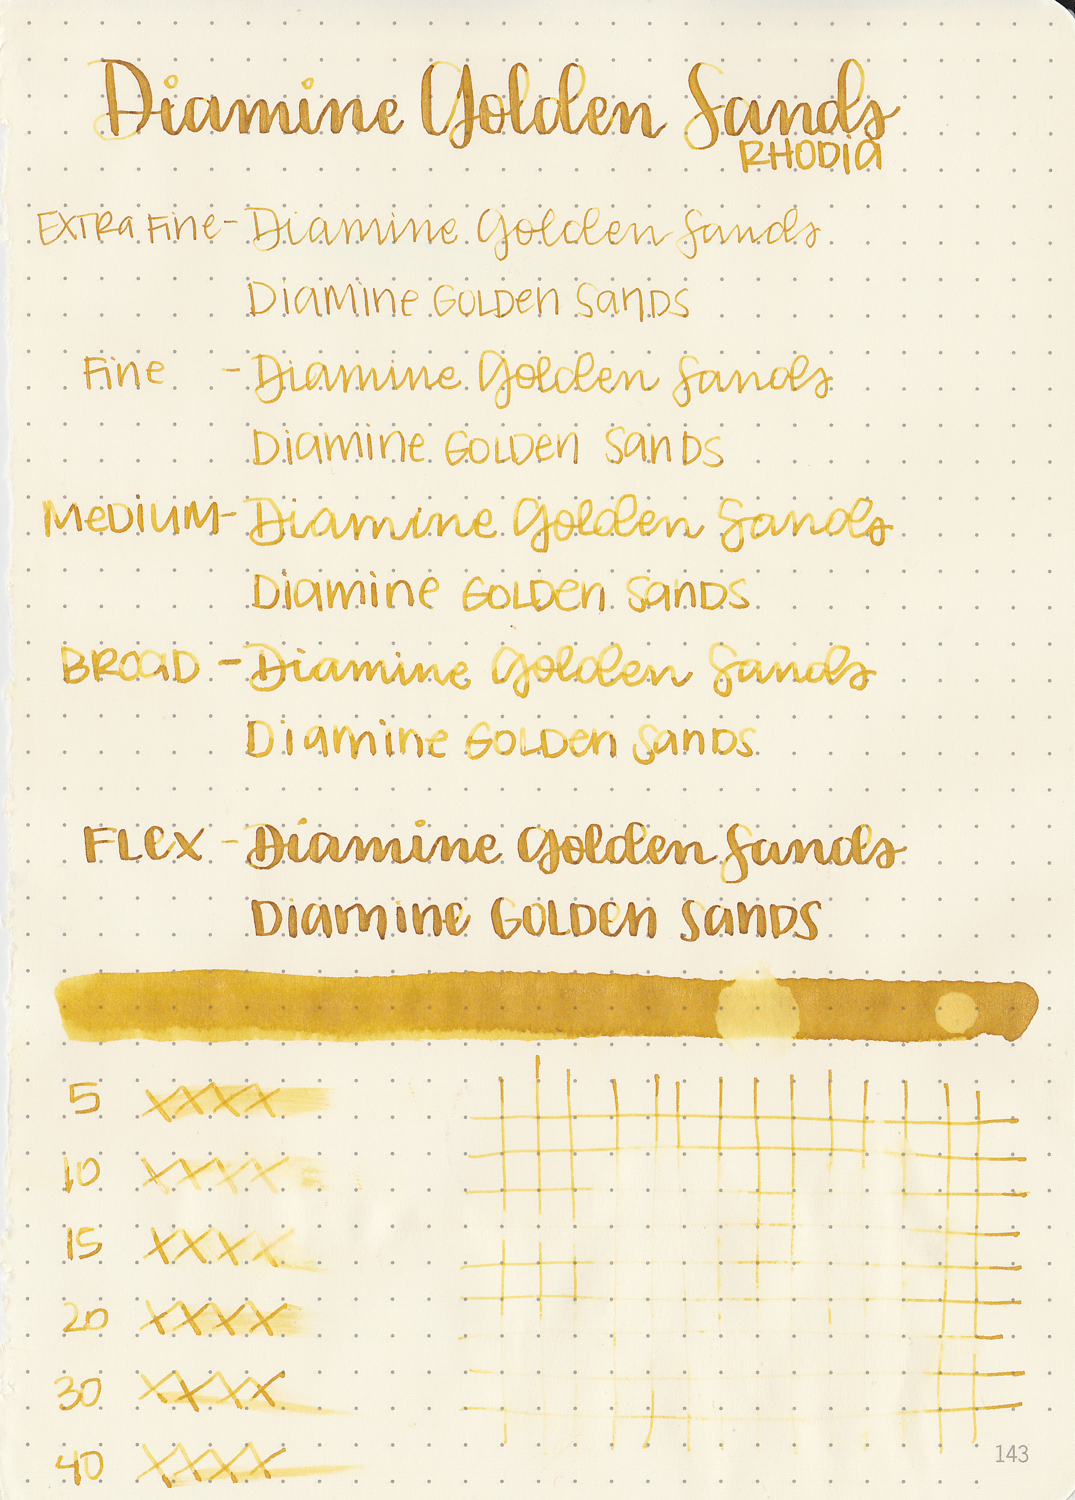 Diamine Golden Sands
RHODIA
EXTRA FINE - Diamine Golden Sands
DIAMINE GOLDEN SANDS
FINE - Diamine Golden Sands
DIAMINE GOLDEN SANDS
MEDIUM - Diamine Golden Sands
DIAMINE GOLDEN SANDS
BROAD - Diamine Golden Sands
DIAMINE GOLDEN SANDS
FLEX - Diamine Golden Sands
DIAMINE GOLDEN SANDS
5 XXXX
10 XXXX
15 XXXX
20 XXXX
30 XXXX
40 XXXX
143